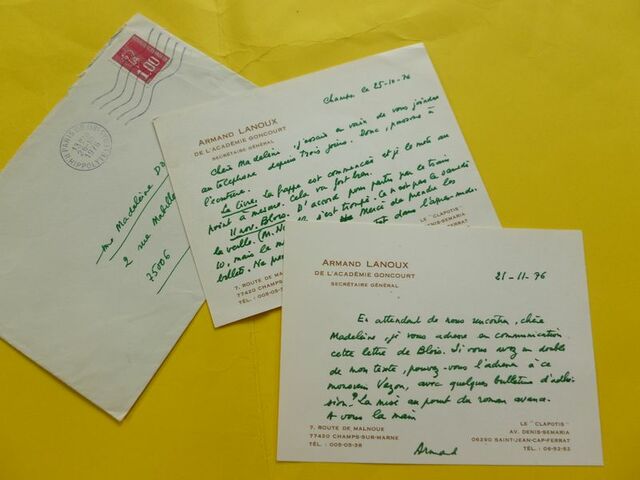 1.00
PARIS
R. HIPPOLYTE
1976
Mme Madeleine
2 rue Mabillon
75006
Champs le 25-10-76
ARMAND LANOUX
DE L'ACADÉMIE GONCOURT
SECRÉTAIRE GÉNÉRAL
Chère Madeleine, j'essaie en vain de vous joindre
au téléphone depuis trois jours. Donc, passons à
l'écriture.
Le livre. La frappe est commencée et je le mets au
point à mesure. Cela va fort bien.
11 nov. Blois. D'accord pour partir par le train
la veille. s'est trompé. Ce n'est pas le samedi
10, mais le Merci de prendre les
billets. Ne dans l'après-midi.
LE "CLAPOTIS"
AV. DENIS-SEMARIA
7, ROUTE DE
77420 CHAMPS-
TÉL. : 005-05-
ARMAND LANOUX
DE L'ACADÉMIE GONCOURT
SECRÉTAIRE GÉNÉRAL
21-11-76
En attendant de nous rencontrer, chère
Madeleine, je vous adresse en communication
cette lettre de Blois. Si vous avez un double
de mon texte, pouvez-vous l'adresser à ce
monsieur Vazon, avec quelques bulletins d'adhé-
sion? La mise au point du roman avance.
A vous la main
Armand
7, ROUTE DE MALNOUE
77420 CHAMPS-SUR-MARNE
TÉL. : 005-05-38
LE "CLAPOTIS"
AV. DENIS-SEMARIA
06290 SAINT-JEAN-CAP-FERRAT
TÉL. : 06-52-52